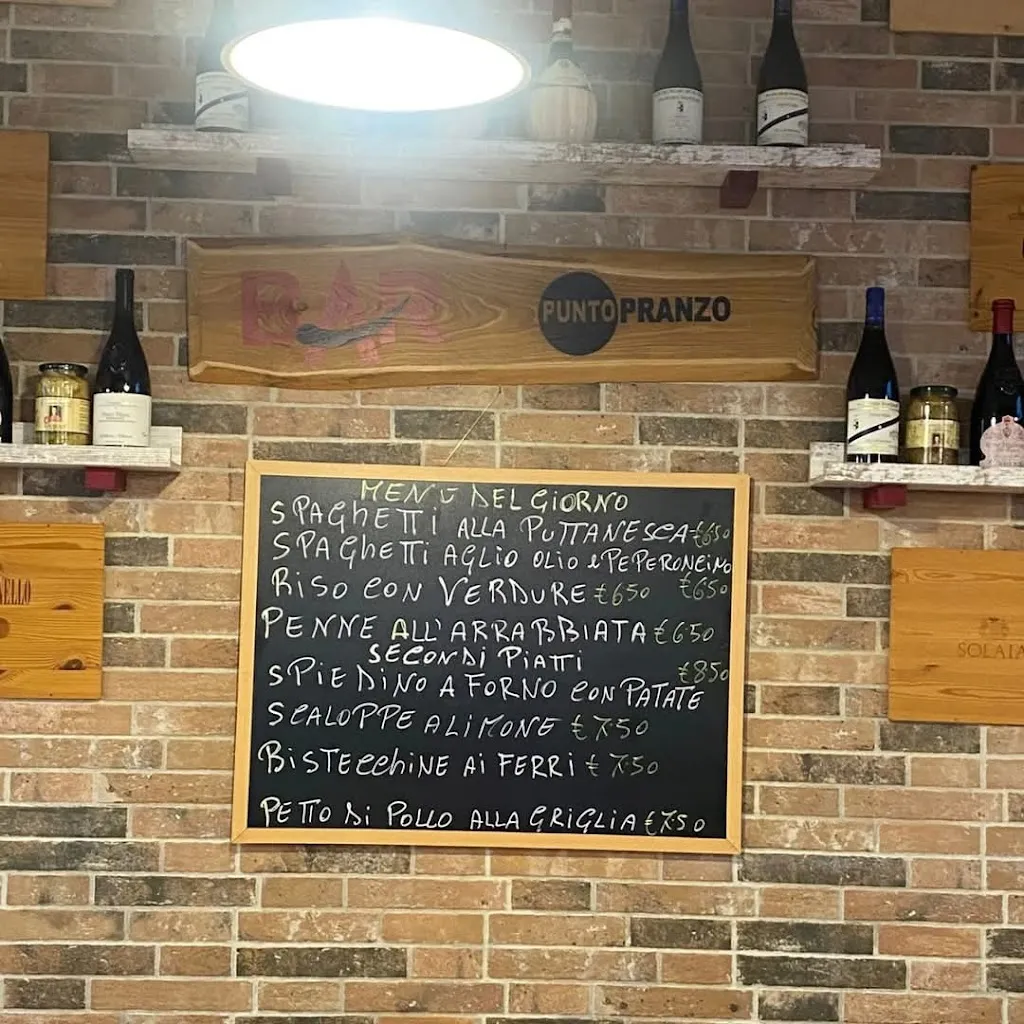 BAR
PUNTO PRANZO
MENU DEL GIORNO
SPAGHETTI ALLA PUTTANESCA €650
SPAGHETTI AGLIO OLIO e PEPERONCINO
€650
RISO CON VERDURE €650
PENNE ALL'ARRABBIATA €650
SECONDI PIATTI
€850
SPIEDINO A FORNO CON PATATE
SCALOPPE A LIMONE € 7.50
BISTECCHINE AI FERRI € 7.50
PETTO DI POLLO ALLA GRIGLIA € 7.50
SOLAIA